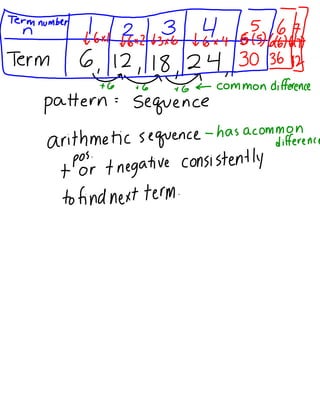 Term number n 1 2 3 4 5 6
↓6×1 ↓6×2 ↓3×6 ↓6×4 6(5)
Term 6, 12, 18, 24, 30 36
+6 +6 +6 ← common difference
pattern = sequence
arithmetic sequence - has a common
difference
pos.
+ or + negative consistently
to find next term.